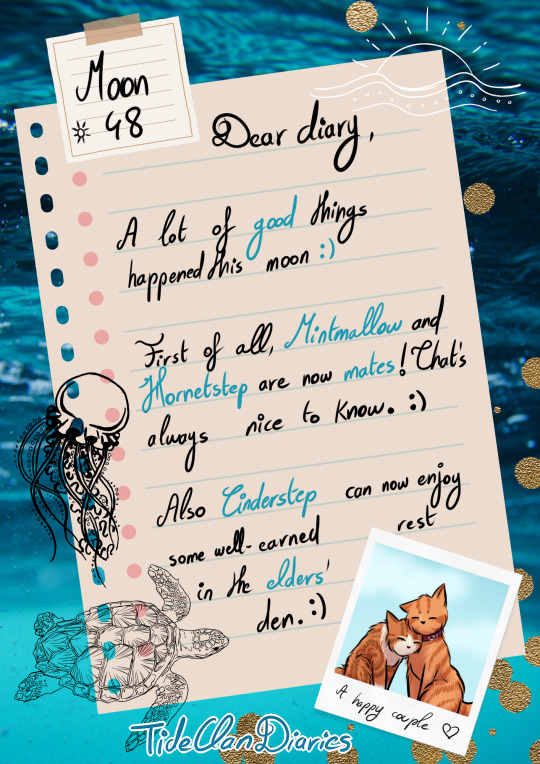 Moon
48
Dear diary,
A lot of good things
happened this moon :)
First of all, Mintmallow and
Hornetstep are now mates! That's
always nice to know. :)
Also Cinderstep can now enjoy
some well-earned rest
in the elders'
den. :)
A happy couple ♡
TideClanDiaries